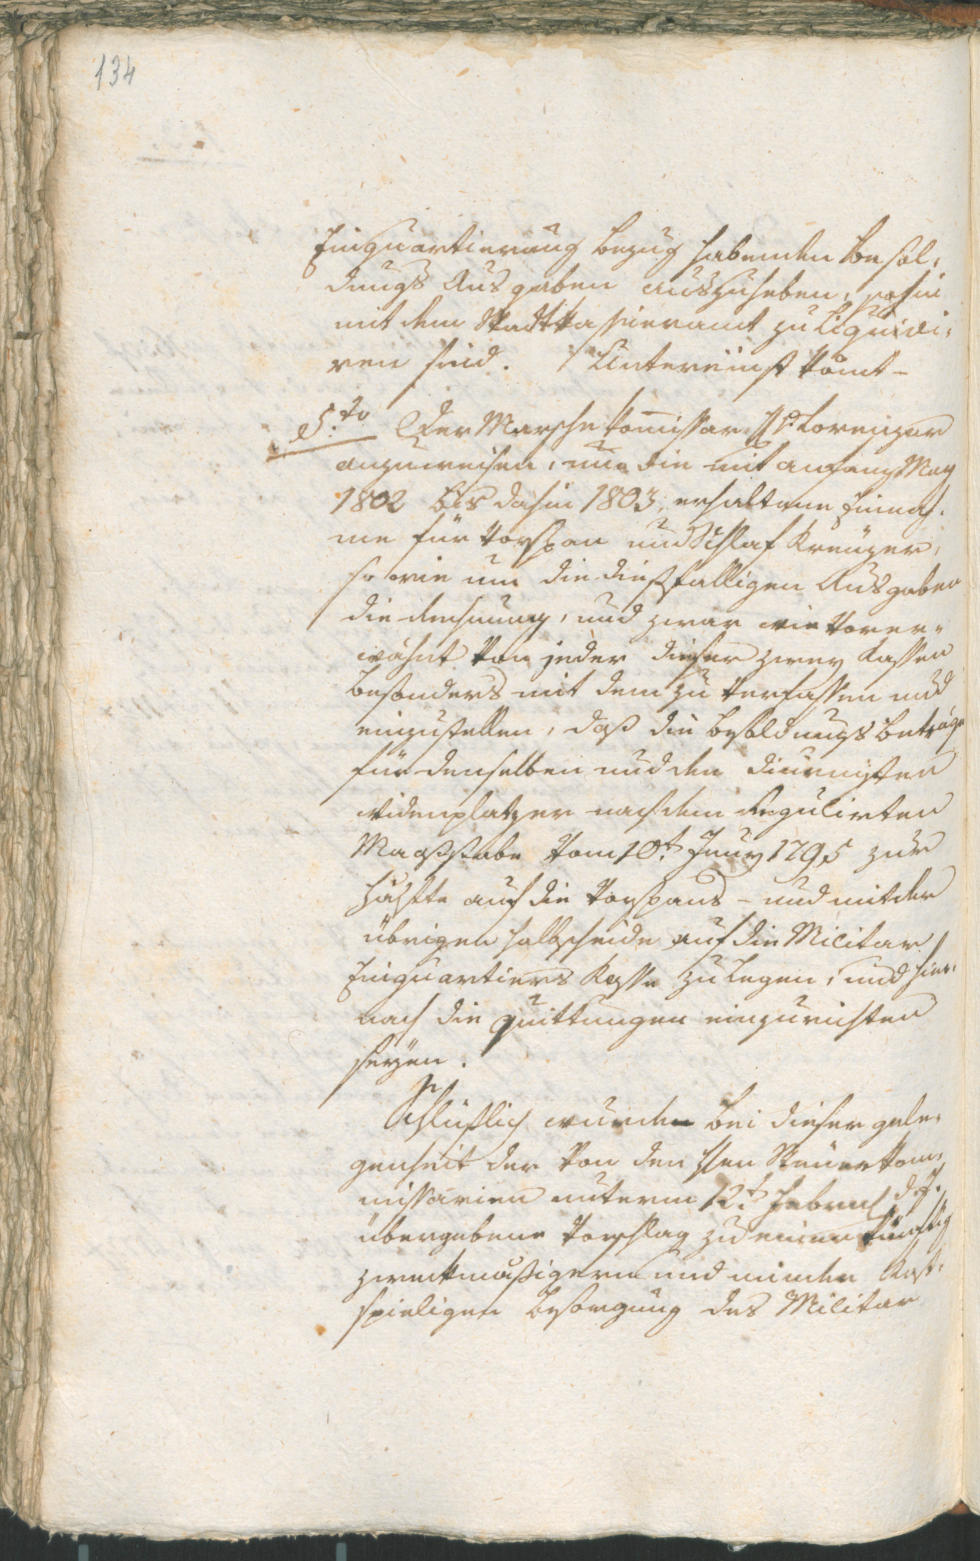 134
Einquartierung bezug habenden Besol¬
dungs Ausgaben auszuheben, sohin
mit dem Stadtkassieramt zu liquidi¬
ren sind. Untereinst kömt-
5.to Der Marsche Komissar H: Lorenzer
anzuweisen, um die mit anfang May
1802 bis dahin 1803, erhaltene Einnah¬
me für Vorspan und Schlaf Kreuzer,
so wie um die dießfälligen Ausgaben
die Rechnung, und zwar wie Vorer¬
wähnt Von jeder dieser zwey Kassen
besonders mit dem zu Verfassen und
einzustellen, daß die besoldungs Beträge
für denselben und den Diurnisten
Widenplatzer nach dem Regulirten
Maaßstabe Vom 10.t Juny 1795 zur
Hälfte auf die Vorspans- und mit der
übrigen halbscheide auf die Militar
Einquartiers Kasse zu legen, und hier¬
nach die Quittungen einzurichten
seyen.
Schlüßlich wurde bei dieser gele¬
genheit der Von den Hen Steuer Kom¬
missarien unterm 12.t Februar d. J.
übergebene Vorschlag zu einer künftig
zweckmäßigern und minder Kost¬
spieligen Besorgung des Militar